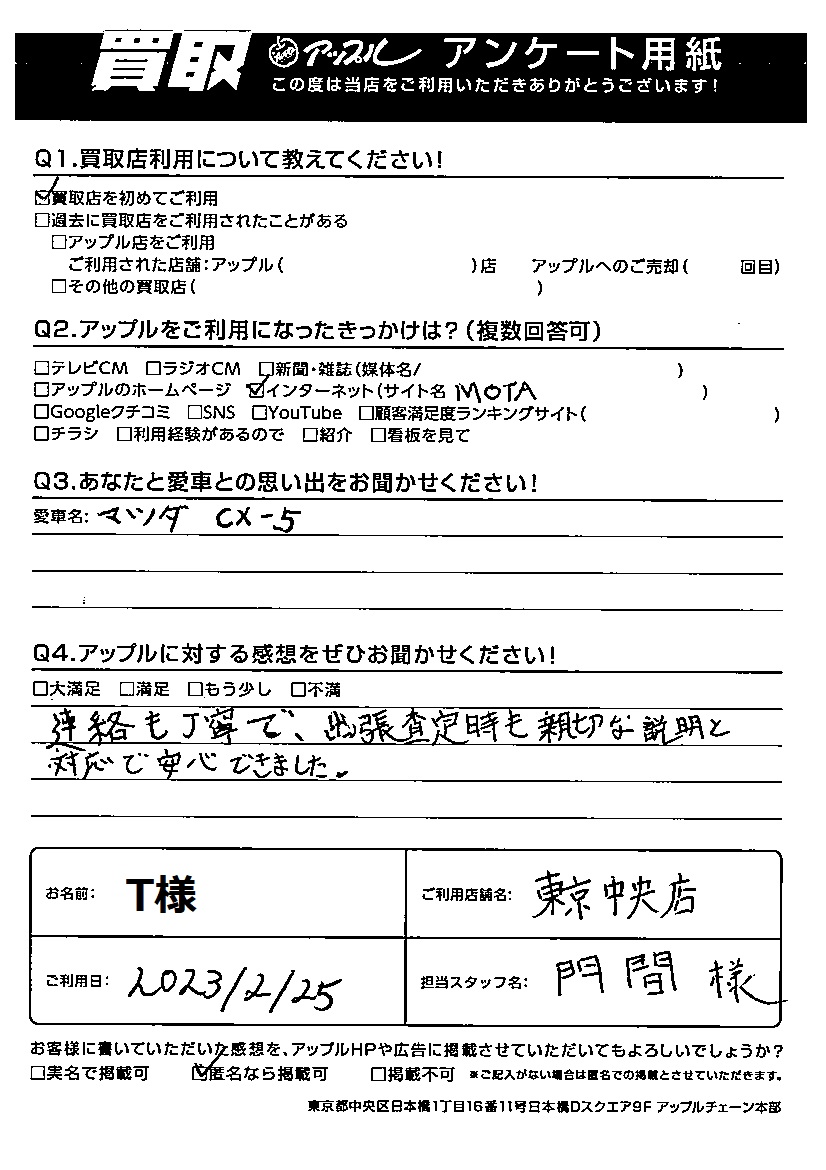 買取 アップル アンケート用紙
この度は当店をご利用いただきありがとうございます！
Q1.買取店利用について教えてください！
☑買取店を初めてご利用
□過去に買取店をご利用されたことがある
□アップル店をご利用
ご利用された店舗：アップル（ ）店 アップルへのご売却（ 回目）
□その他の買取店（ ）
Q2.アップルをご利用になったきっかけは？（複数回答可）
□テレビCM □ラジオCM □新聞・雑誌（媒体名/ ）
□アップルのホームページ ☑インターネット（サイト名 MOTA ）
□Googleクチコミ □SNS □YouTube □顧客満足度ランキングサイト（ ）
□チラシ □利用経験があるので □紹介 □看板を見て
Q3.あなたと愛車との思い出をお聞かせください！
愛車名： マツダ CX-5
Q4.アップルに対する感想をぜひお聞かせください！
□大満足 □満足 □もう少し □不満
連絡も丁寧で、出張査定時も親切な説明と
対応で安心できました。
お名前： T様 ご利用店舗名： 東京中央店
ご利用日： 2023/2/25 担当スタッフ名： 門間 様
お客様に書いていただいた感想を、アップルHPや広告に掲載させていただいてもよろしいでしょうか？
□実名で掲載可 ☑匿名なら掲載可 □掲載不可 ※ご記入がない場合は匿名での掲載とさせていただきます。
東京都中央区日本橋1丁目16番11号日本橋Dスクエア9F アップルチェーン本部